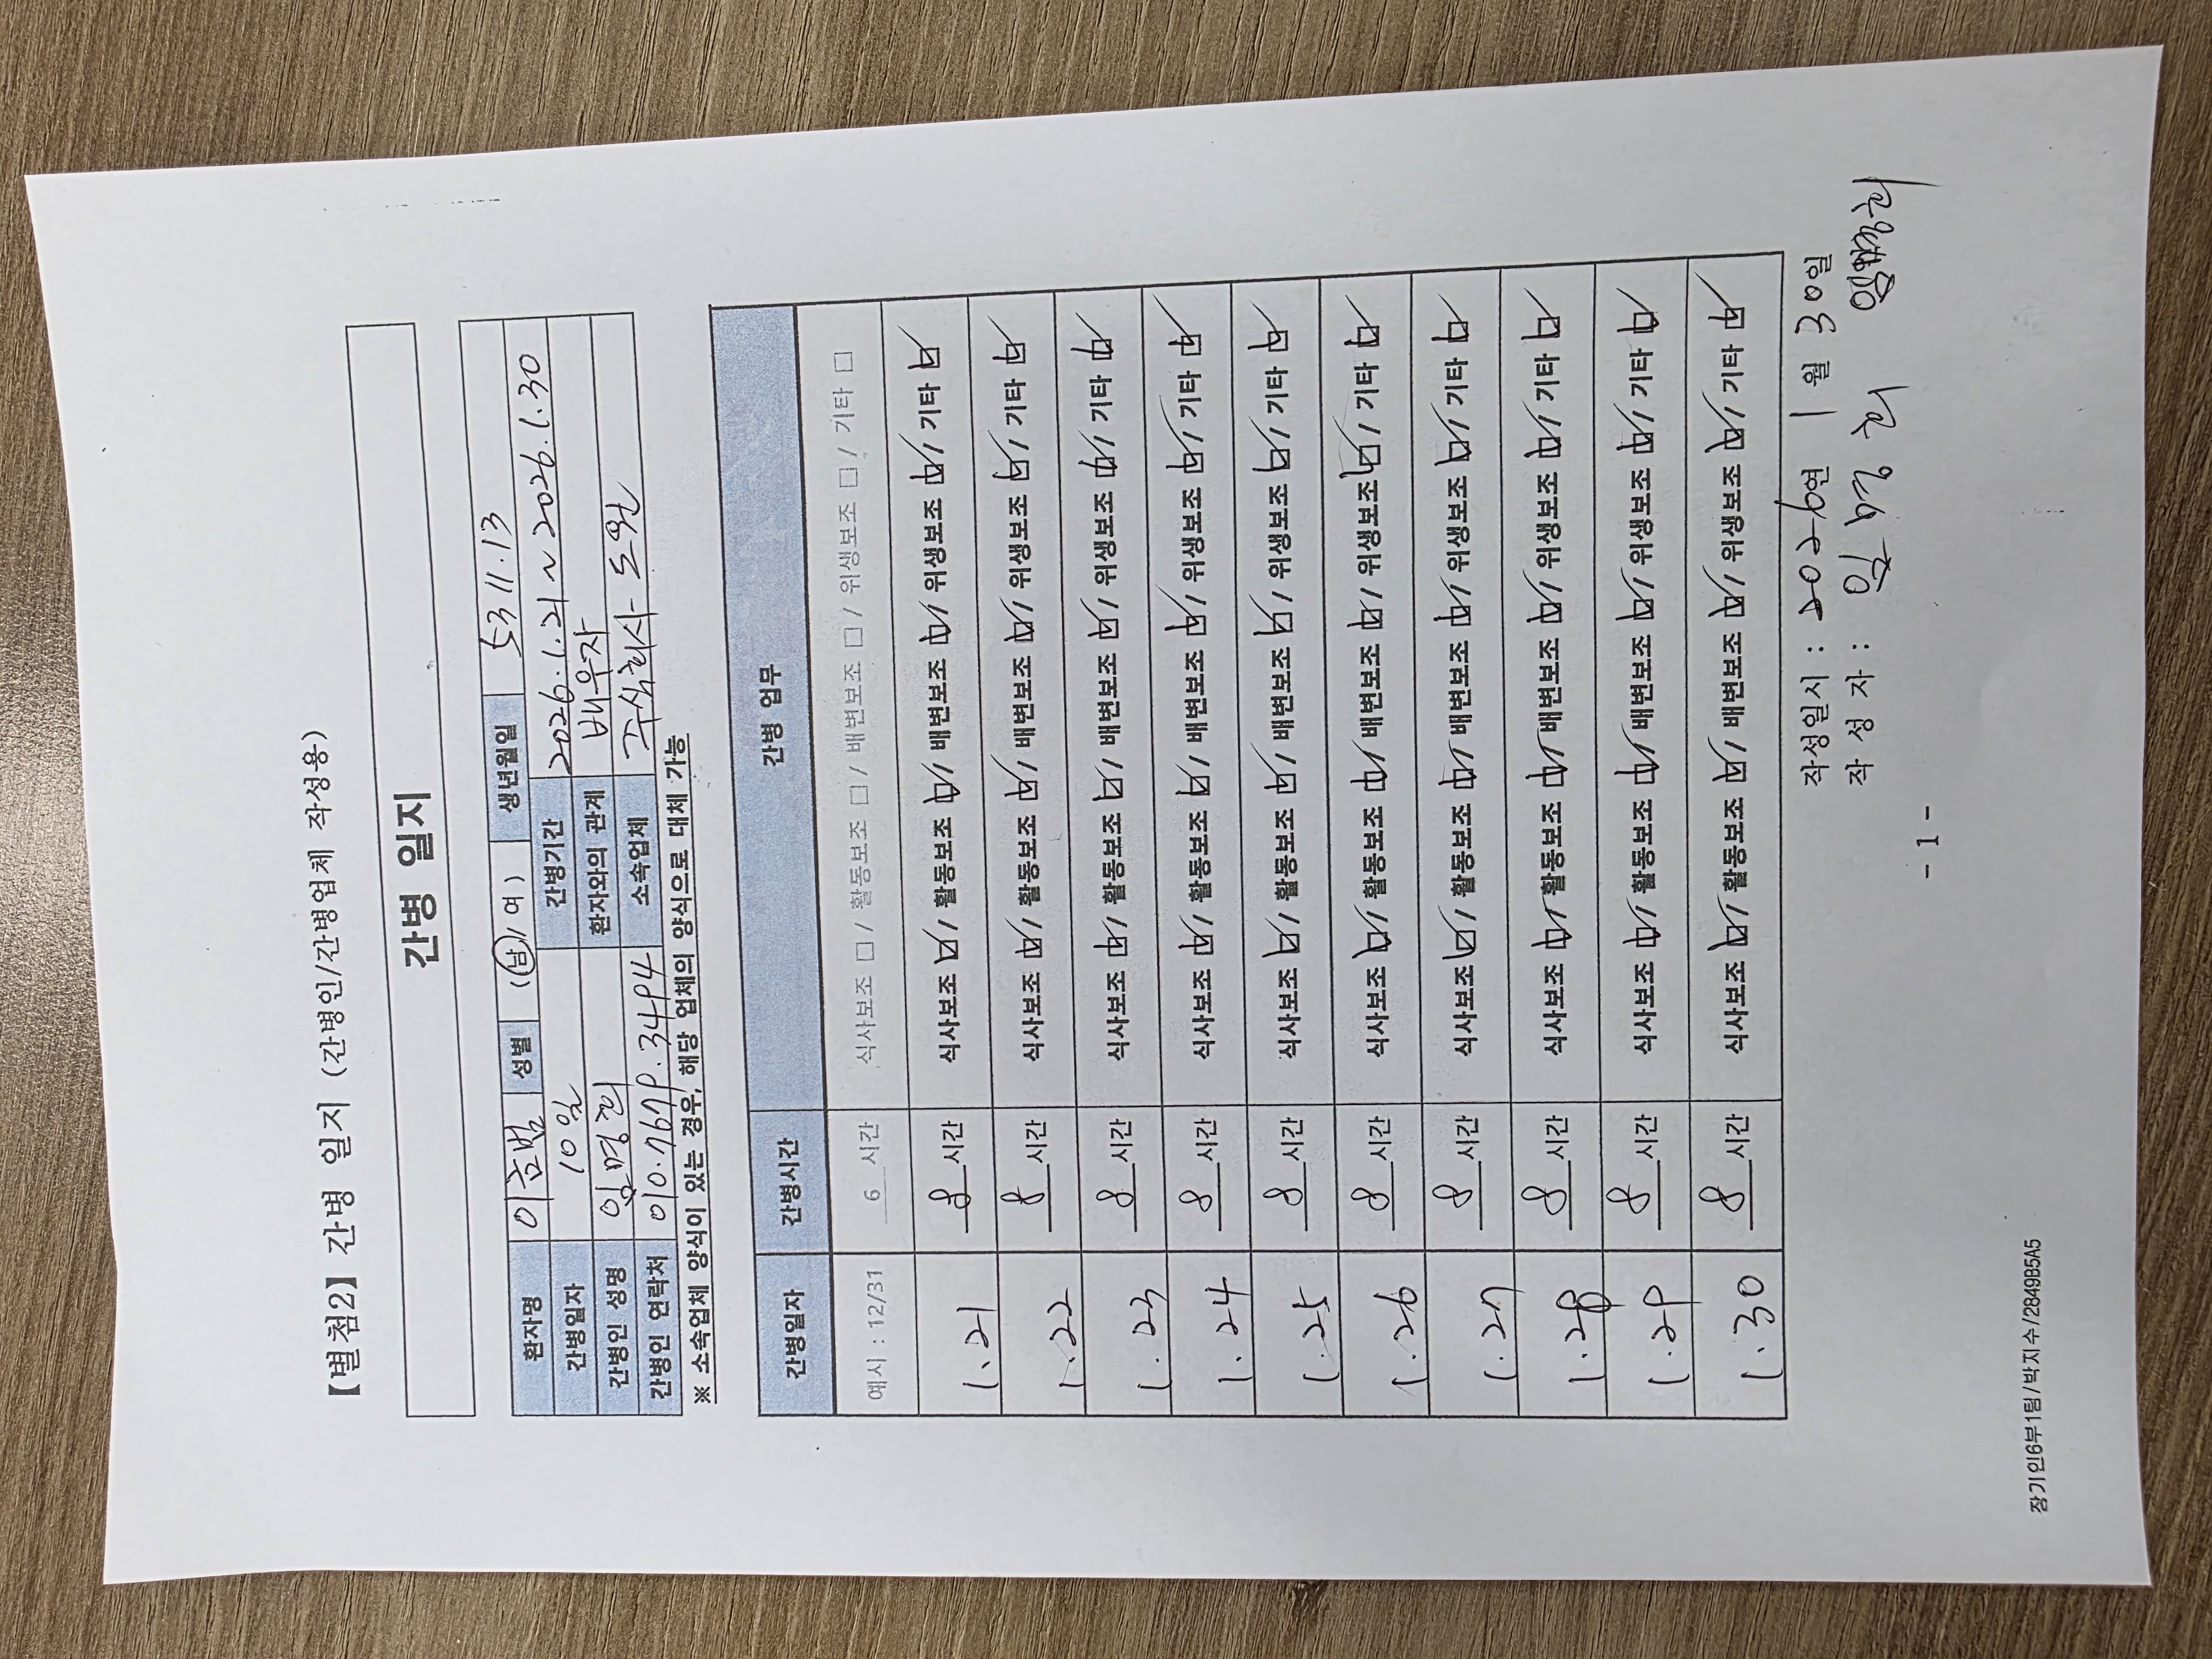 【별첨2】 간병 일지 (간병인/간병업체 작성용)
간병 일지
환자명 이금범 성별 (남/여) 생년월일 53.11.13
간병일자 10일 간병기간 2026.1.21~2026.1.30
간병인 성명 임명희 환자와의 관계 배우자
간병인 연락처 010.7679.3494 소속업체 주식회사 도원
※ 소속업체 양식이 있는 경우, 해당 업체의 양식으로 대체 가능
간병일자 간병시간 간병 업무
예시 : 12/31 6 시간 식사보조 □ / 활동보조 □ / 배변보조 □ / 위생보조 □ / 기타 □
1.21 8 시간 식사보조 ☑ / 활동보조 ☑ / 배변보조 ☑ / 위생보조 ☑ / 기타 ☑
1.22 8 시간 식사보조 ☑ / 활동보조 ☑ / 배변보조 ☑ / 위생보조 ☑ / 기타 ☑
1.23 8 시간 식사보조 ☑ / 활동보조 ☑ / 배변보조 ☑ / 위생보조 ☑ / 기타 ☑
1.24 8 시간 식사보조 ☑ / 활동보조 ☑ / 배변보조 ☑ / 위생보조 ☑ / 기타 ☑
1.25 8 시간 식사보조 ☑ / 활동보조 ☑ / 배변보조 ☑ / 위생보조 ☑ / 기타 ☑
1.26 8 시간 식사보조 ☑ / 활동보조 ☑ / 배변보조 ☑ / 위생보조 ☑ / 기타 ☑
1.27 8 시간 식사보조 ☑ / 활동보조 ☑ / 배변보조 ☑ / 위생보조 ☑ / 기타 ☑
1.28 8 시간 식사보조 ☑ / 활동보조 ☑ / 배변보조 ☑ / 위생보조 ☑ / 기타 ☑
1.29 8 시간 식사보조 ☑ / 활동보조 ☑ / 배변보조 ☑ / 위생보조 ☑ / 기타 ☑
1.30 8 시간 식사보조 ☑ / 활동보조 ☑ / 배변보조 ☑ / 위생보조 ☑ / 기타 ☑
작성일시 : 2026연 1월 30일
작 성 자 : 임명희
- 1 -
장기인6부1팀/박지수/2849B5A5